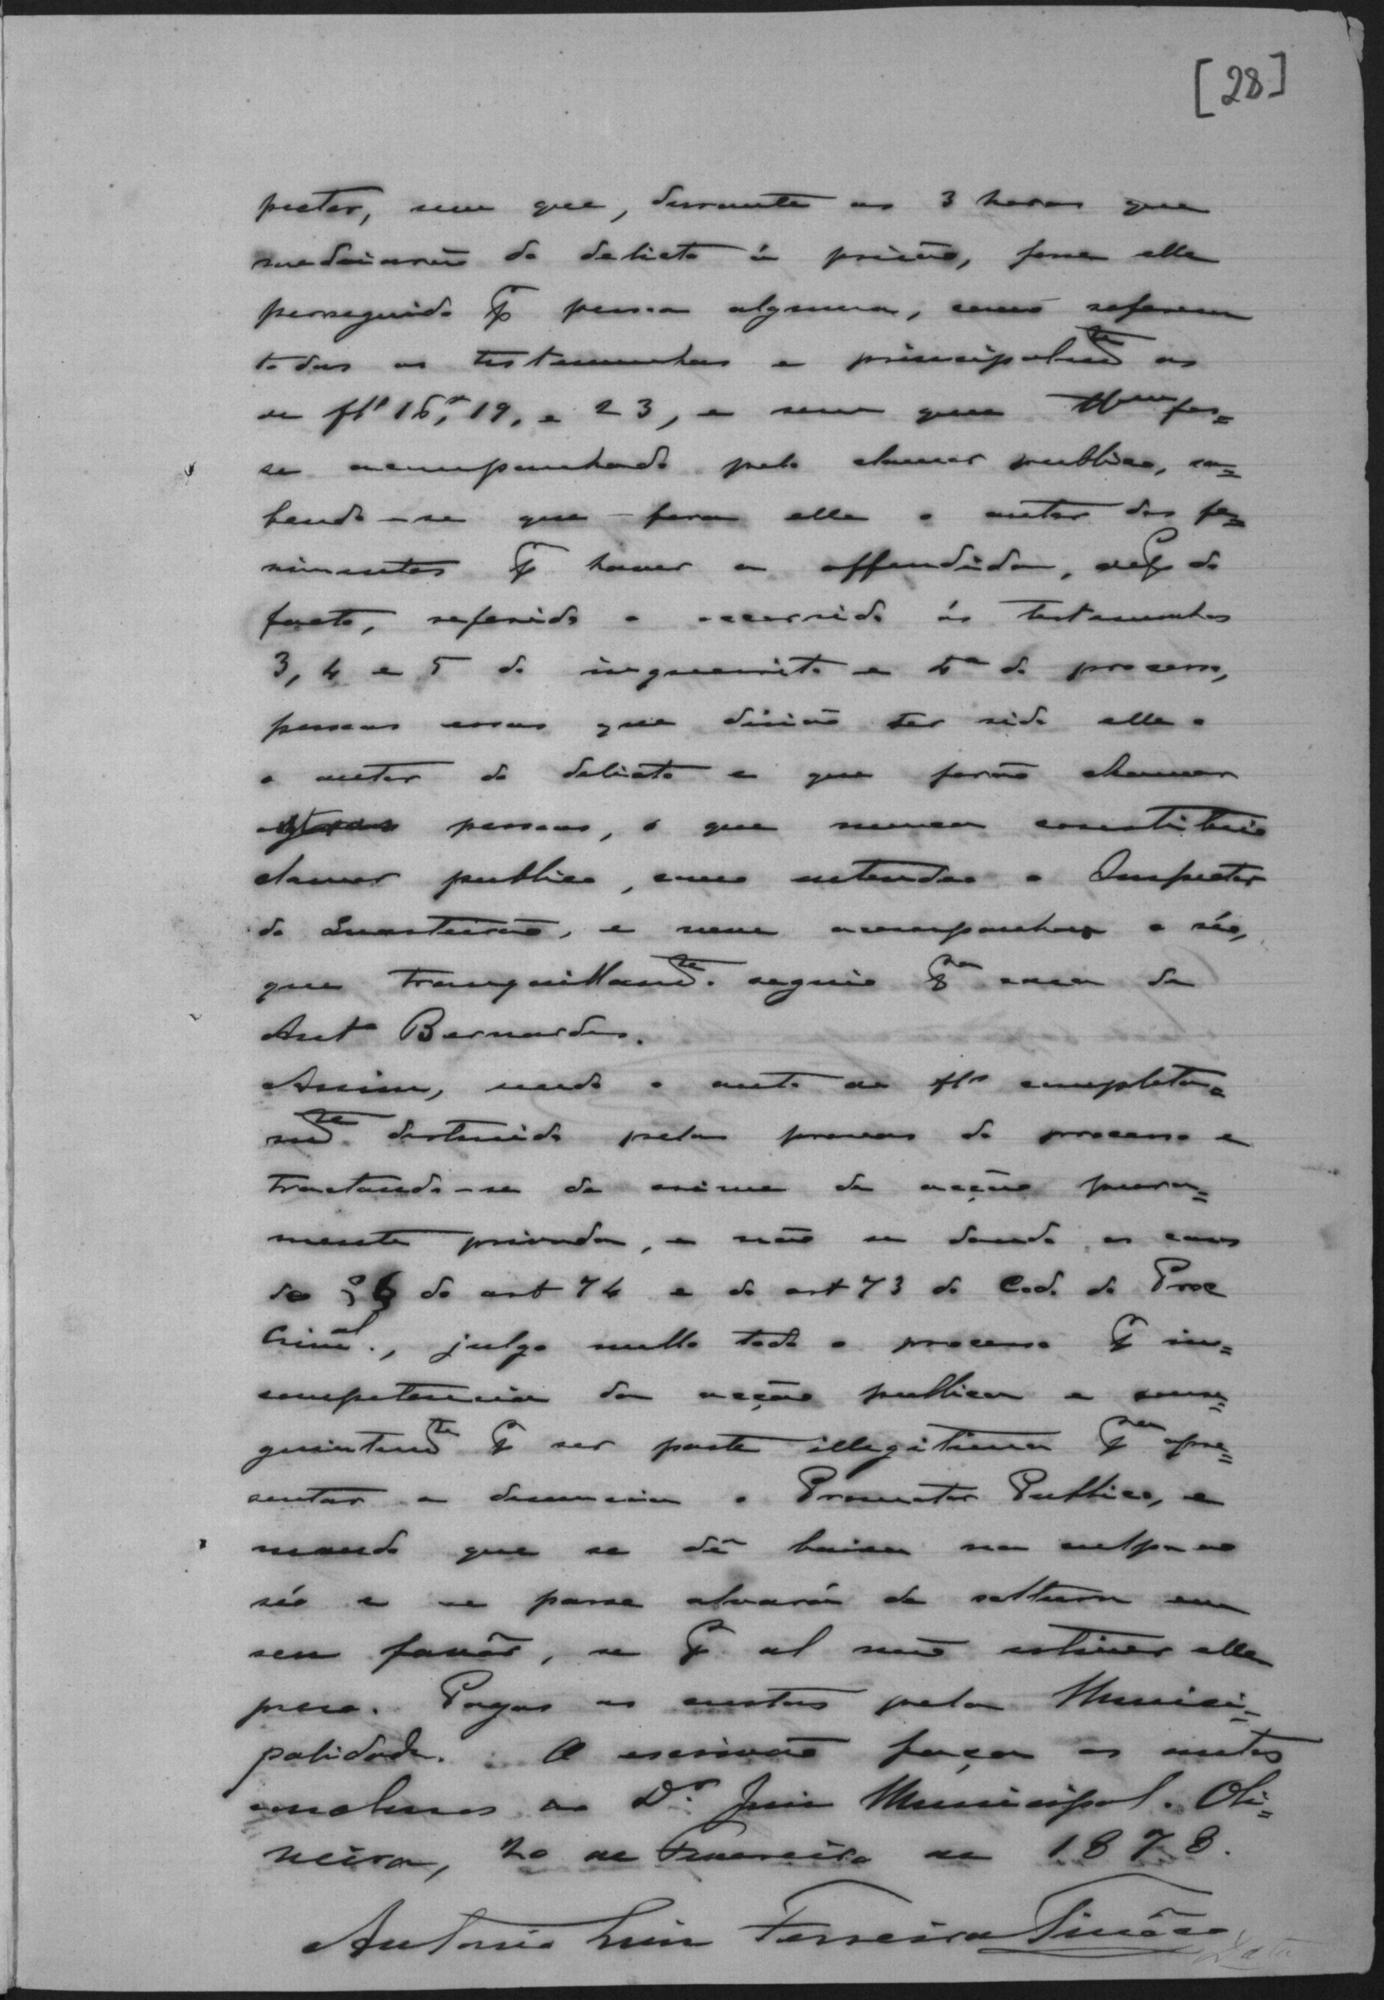 [28]
pector, sem que, durante as 3 horas que
mediarão do delicto á prisão, fosse elle
perseguido p.r pessoa alguma, como referem
todas as testemunhas e principalm.te as
de fls 16, 19, e 23, e sem que fos=
se acompanhado pelo clamor publico, sa=
bendo-se que fora elle o autor dos fe=
rimentos p.r haver a offendida, de do
facto, referido o occorrido ás testemunhas
3, 4 e 5 do inquerito e 4ª do processo,
pessoas essas que disião ter sido elle o
o autor do delicto e que forão chamar
outras pessoas, o que nunca constituio
clamor publico, como entendeo o Inspector
do Quarteirão, e nem acompanhou o réo,
que tranquillam.te seguio p.ra casa de
Ant.o Bernardes.
Assim, sendo o auto de fls completa=
m.te destruido pelas provas do processo e
tractando-se de crime de acção pura=
mente privada, e não se dando os casos
do § 6 do art 74 e do art 73 do Cod. do Proc
Crim.al, julgo nullo todo o processo p.r in=
competencia da acção publica e conse=
guintem.te p.r ser parte illegitima p.ra apre=
sentar a denuncia o Promotor Publico, e
mando que se dê baixa na culpa ao
réo e se passe alvará de soltura em
seu favôr, se p.r al não estiver elle
preso. Pagas as custas pela Munici=
palidade. O escrivão faça os autos
conclusos ao D.r Juiz Municipal. Oli=
veira, 20 de Fevereiro de 1878.
Antonio Luiz Ferreira Tinôco